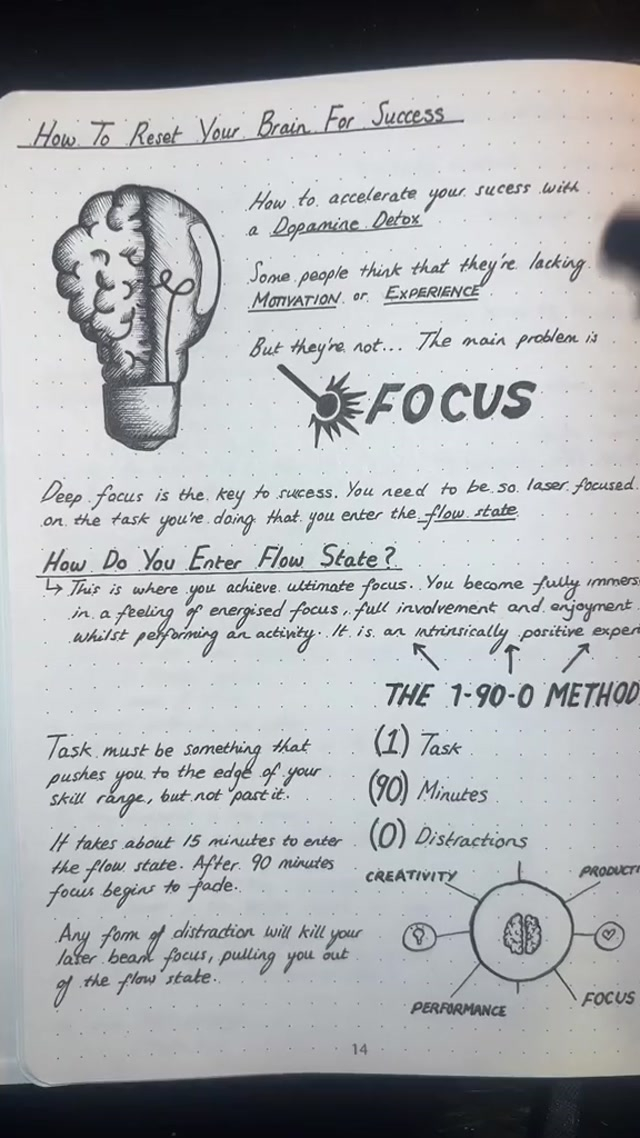 How To Reset Your Brain For Success
How to accelerate your sucess with
a Dopamine Detox
Some people think that they're lacking
MOTIVATION or EXPERIENCE
But they're not... The main problem is
FOCUS
Deep focus is the key to success. You need to be so laser focused
on the task you're doing that you enter the flow state.
How Do You Enter Flow State?
↳ This is where you achieve ultimate focus. You become fully immers
in a feeling of energised focus, full involvement and enjoyment
whilst performing an activity. It is an intrinsically positive exper
THE 1-90-0 METHOD
Task must be something that
pushes you to the edge of your
skill range, but not past it.
(1) Task
(90) Minutes
(0) Distractions
It takes about 15 minutes to enter
the flow state. After 90 minutes
focus begins to fade.
Any form of distraction will kill your
later beam focus, pulling you out
of the flow state.
CREATIVITY
PRODUCTI
PERFORMANCE
FOCUS
14